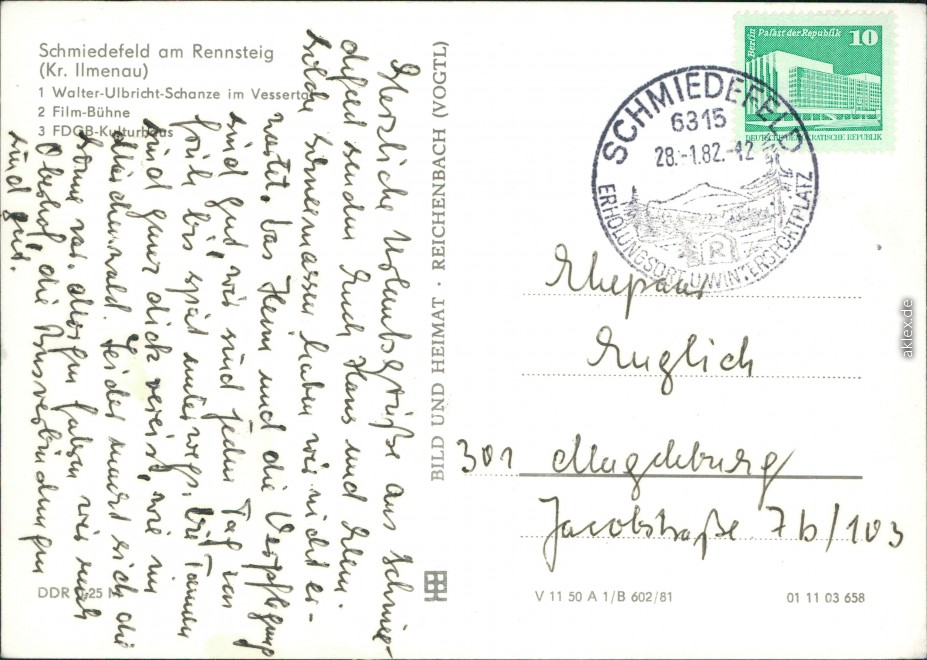 Schmiedefeld am Rennsteig
(Kr. Ilmenau)
1 Walter-Ulbricht-Schanze im Vessertal
2 Film-Bühne
3 FDGB-Kulturhaus
Herzliche Urlaubsgrüße aus Schmie-
defeld senden Euch Hans und
solche Schneemassen haben wir nicht er-
wartet. Das Heim und die Verpflegung
sind gut, wir sind jeden Tag von
früh bis spät unterwegs. Die Tannen
sind ganz dick vereist, wie im
Märchenwald. Leider macht sich die
Sonne rar. Morgen fahren wir nach
Oberhof, die Busverbindungen
sind gut.
DDR 0,25 M
BILD UND HEIMAT · REICHENBACH (VOGTL)
Berlin Palast der Republik 10
DEUTSCHE DEMOKRATISCHE REPUBLIK
SCHMIEDEFELD
6315
28.-1.82.-12
R
ERHOLUNGSORT U. WINTERSPORTPLATZ
Ehepaar
Englich
301 Magdeburg
Jacobstraße 7b/103
V 11 50 A 1/B 602/81
01 11 03 658
aklex.de